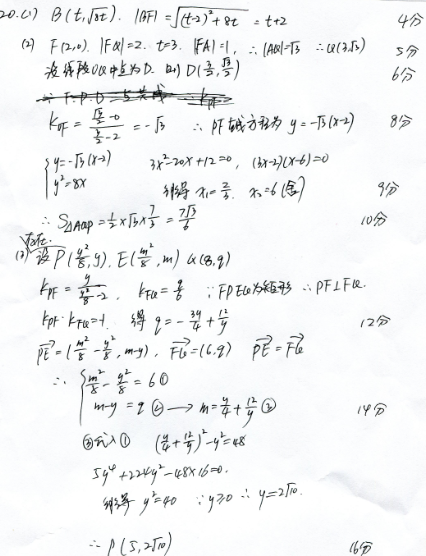 20.(1) B(t,√8t). |BF|=√((t-2)²+8t) = t+2 4分
(2) F(2,0). |FQ|=2. t=3. |FA|=1, ∴|AQ|=√3 ∴Q(3,√3) 5分
设线段OQ中点为D. 则D(3/2,√3/2) 6分
K_DF=(√3/2-0)/(3/2-2)=-√3 ∴PF直线方程为 y=-√3(x-2) 8分
{y=-√3(x-2) 3x²-20x+12=0, (3x-2)(x-6)=0
y²=8x 解得 x₁=2/3, x₂=6(舍) 9分
∴S△AQP=1/2×√3×7/3=7√3/6 10分
存在.
(3) 设P(y²/8,y). E(m²/8,m) Q(8,q)
K_PF=y/(y²/8-2), K_FQ=q/6 ∵FPEQ为矩形 ∴PF⊥FQ.
K_PF·K_FQ=-1 得 q=-3y/4+12/y 12分
PE=(m²/8-y²/8, m-y), FQ=(6,q) PE=FQ
∴{m²/8-y²/8=6①
m-y=q②→m=y/4+12/y③ 14分
③代入① (y/4+12/y)²-y²=48
5y⁴+224y²-48×16=0.
解得 y²=40 ∵y≥0 ∴y=2√10.
∴P(5,2√10) 16分